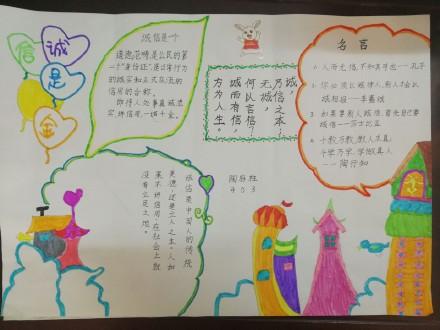 诚信
是
金
诚信是个
道德范畴,是公民的第
二个"身份证",是日常行为
的诚实和正式交流的
信用的合称。
即待人处事真诚、老
实、讲信誉,一诺千金。
诚,
乃信之本;
无诚,
何以言信?
诚而有信,
方为人生。
名言
1. 人而无信,不知其可也——孔子
2. 你必须以诚待人,别人才会以
诚相报——李嘉诚
3. 如果要别人诚信,首先自己要
诚信——莎士比亚
4. 千教万教,教人求真;
千学万学,学做真人
——陶行知
诚信是中国人的传统
美德,还是立人之本。人如
果不讲信用,在社会上就
没有立足之地。
403